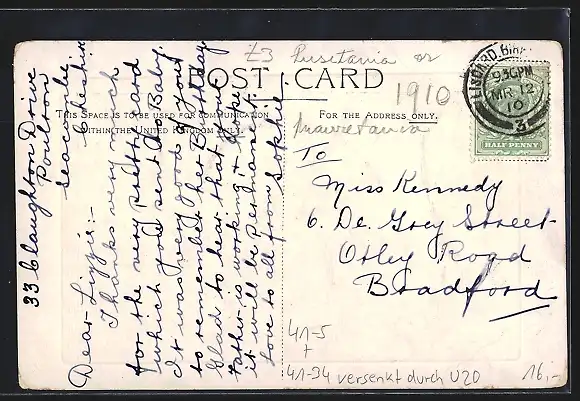 £3 Lusitania or
POST CARD
1910
THIS SPACE IS TO BE USED FOR COMMUNICATION
WITHIN THE UNITED KINGDOM ONLY.
FOR THE ADDRESS ONLY.
Mauretania
LISCARD, BIRK
9 30PM
MR 12
10
3
HALF PENNY
33 Claughton Drive
Poulton
Seacombe
Cheshire
Dear Lizzie:-
Thanks very much
for the very pretty card
which you sent to Baby.
It was very good of you
to remember her Birthday.
Glad to hear that your
Father is working & hope
it will be permanent.
Love to all from Sophie
To
Miss Kennedy
6. De. Grey Street
Otley Road
Bradford
41-5
+
41-34 versenkt durch U20
16,-